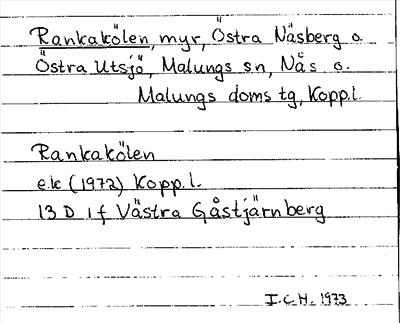 Rankakölen, myr, Östra Näsberg o.
Östra Utsjö, Malungs sn, Nås o.
Malungs doms tg, Kopp.l.
Rankakölen
ek (1972) Kopp.l.
13 D 1 f Västra Gåstjärnberg
I.C.H. 1973